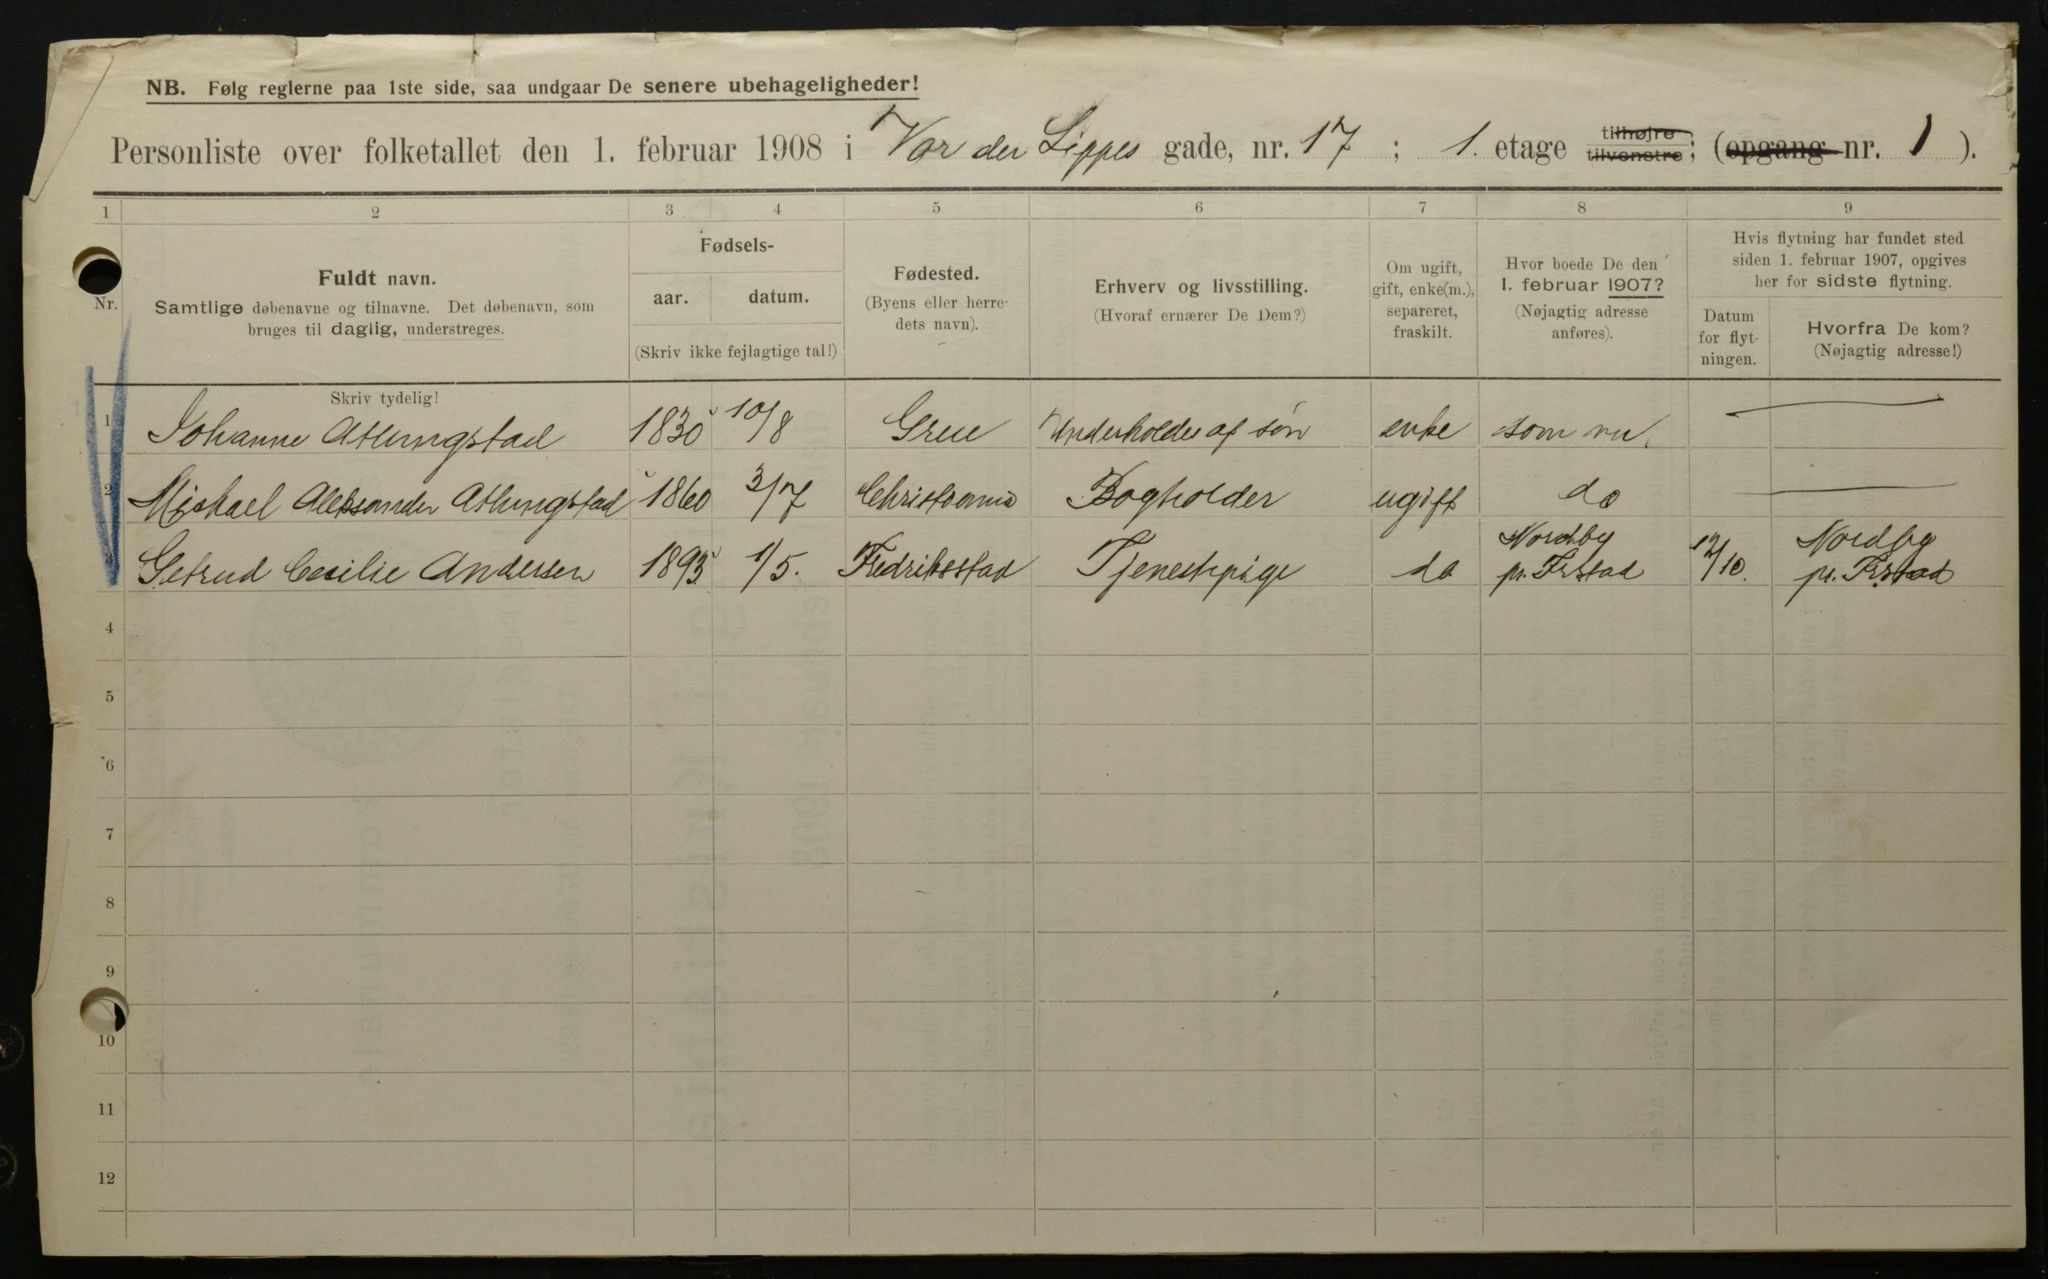 NB. Følg reglerne paa 1ste side, saa undgaar De senere ubehageligheder!
Personliste over folketallet den 1. februar 1908 i Vor der Lippes gade, nr. 17 ; 1. etage tilhøjre tilvenstre; (opgang nr. 1 ).
1 2 3 4 5 6 7 8 9
Nr.
Fuldt navn.
Samtlige døbenavne og tilnavne. Det døbenavn, som
bruges til daglig, understreges.
Skriv tydelig!
Fødsels-
aar. datum.
(Skriv ikke fejlagtige tal!)
Fødested.
(Byens eller herre-
dets navn).
Erhverv og livsstilling.
(Hvoraf ernærer De Dem?)
Om ugift,
gift, enke(m.),
separeret,
fraskilt.
Hvor boede De den
1. februar 1907?
(Nøjagtig adresse
anføres).
Hvis flytning har fundet sted
siden 1. februar 1907, opgives
her for sidste flytning.
Datum
for flyt-
ningen.
Hvorfra De kom?
(Nøjagtig adresse!)
1 Johanne Athungstad 1830 10/8 Grue Underholdes af søn enke som nu.
2 Mickael Aleksander Athungstad 1860 3/7 Christiania Bogholder ugift do
3 Getrud Cecilie Andersen 1893 1/5. Fredriksstad Tjenestepige do Nordby pr. Frstad 12/10. Nordby pr. Frstad
4
5
6
7
8
9
10
11
12